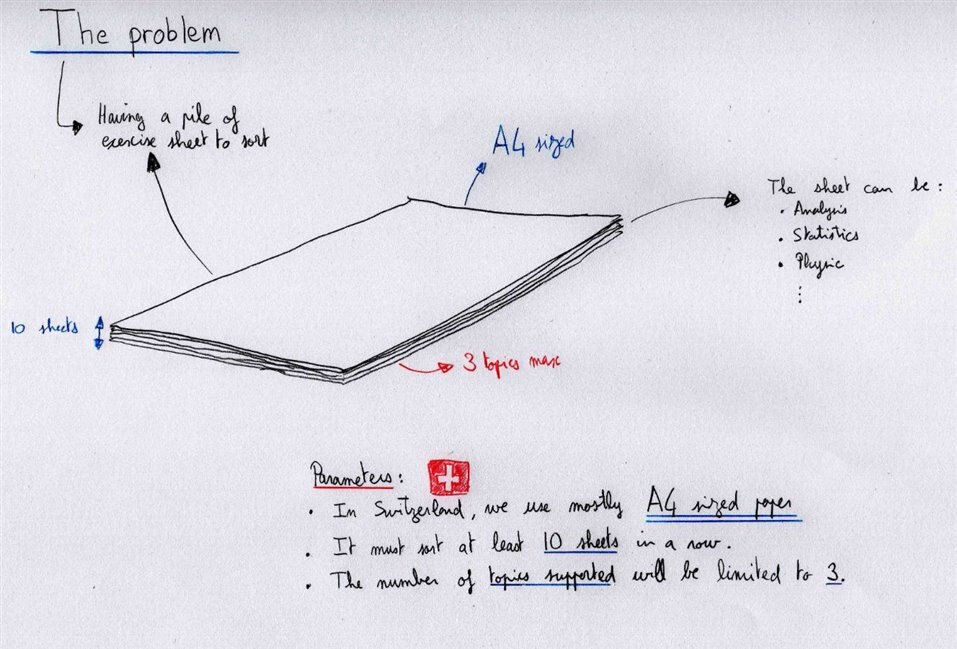 The problem
Having a pile of
exercise sheet to sort
A4 sized
The sheet can be :
• Analysis
• Statistics
• Physic
⋮
10 sheets
3 topics max
Parameters :
• In Switzerland, we use mostly A4 sized paper
• It must sort at least 10 sheets in a row.
• The number of topics supported will be limited to 3.